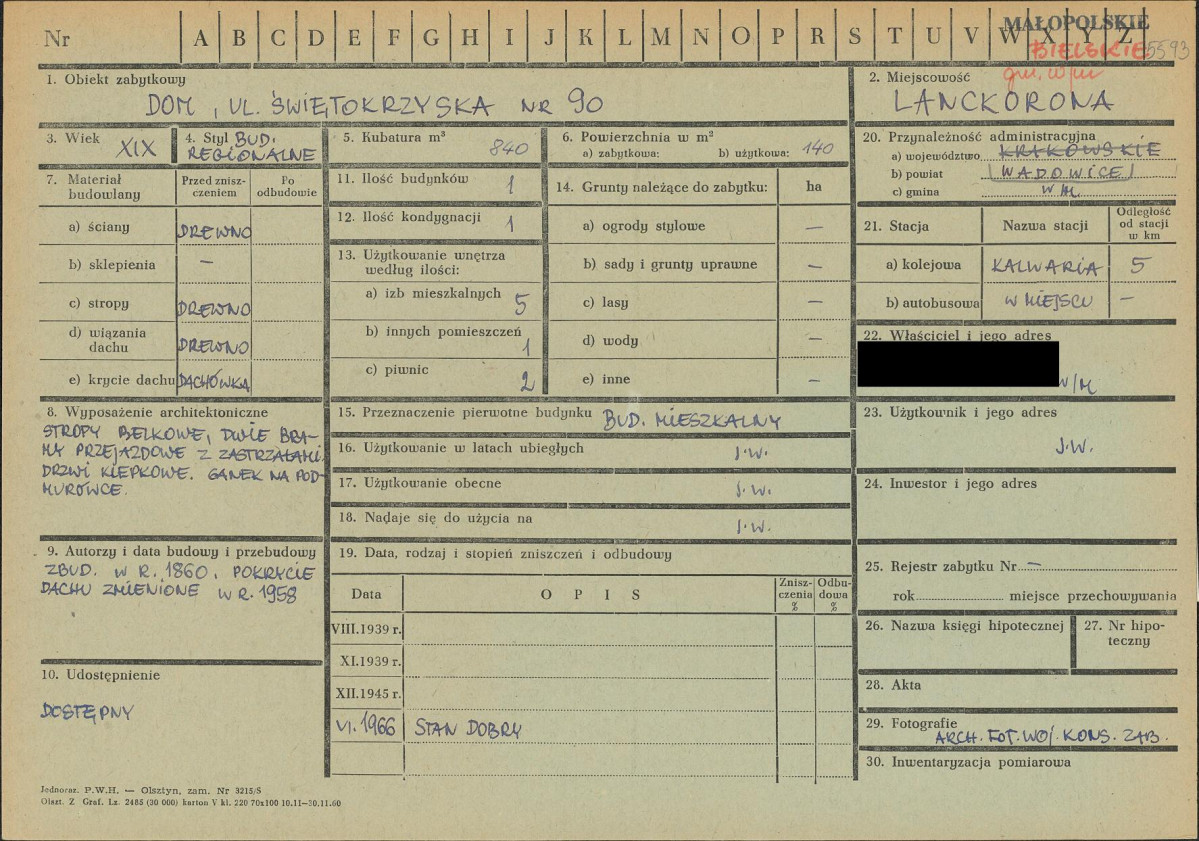 Nr A B C D E F G H I J K L M N O P R S T U V W X Y Z
MAŁOPOLSKIE
BIELSKIE 5593
gm. w/m
1. Obiekt zabytkowy
DOM, UL. ŚWIĘTOKRZYSKA NR 90
2. Miejscowość
LANCKORONA
3. Wiek XIX
4. Styl BUD. REGIONALNE
5. Kubatura m³ 840
6. Powierzchnia w m²
a) zabytkowa: b) użytkowa: 140
7. Materiał budowlany
Przed zniszczeniem
Po odbudowie
a) ściany DREWNO
b) sklepienia —
c) stropy DREWNO
d) wiązania dachu DREWNO
e) krycie dachu DACHÓWKA
8. Wyposażenie architektoniczne
STROPY BELKOWE, DWIE BRA-
MY PRZEJAZDOWE Z ZASTRZAŁAMI.
DRZWI KLEPKOWE. GANEK NA POD-
MURÓWCE.
9. Autorzy i data budowy i przebudowy
ZBUD. W R. 1860. POKRYCIE
DACHU ZMIENIONE W R. 1958
10. Udostępnienie
DOSTĘPNY
11. Ilość budynków 1
12. Ilość kondygnacji 1
13. Użytkowanie wnętrza
według ilości:
a) izb mieszkalnych 5
b) innych pomieszczeń 1
c) piwnic 2
14. Grunty należące do zabytku: ha
a) ogrody stylowe —
b) sady i grunty uprawne —
c) lasy —
d) wody —
e) inne —
15. Przeznaczenie pierwotne budynku BUD. MIESZKALNY
16. Użytkowanie w latach ubiegłych J.W.
17. Użytkowanie obecne J.W.
18. Nadaje się do użycia na J.W.
19. Data, rodzaj i stopień zniszczeń i odbudowy
Data OPIS Zniszczenia % Odbudowa %
VIII.1939 r.
XI.1939 r.
XII.1945 r.
VI.1966 STAN DOBRY
20. Przynależność administracyjna
a) województwo KRAKOWSKIE
b) powiat WADOWICE
c) gmina W M.
21. Stacja Nazwa stacji Odległość od stacji w km
a) kolejowa KALWARIA 5
b) autobusowa W MIEJSCU —
22. Właściciel i jego adres
W/M
23. Użytkownik i jego adres
J.W.
24. Inwestor i jego adres
25. Rejestr zabytku Nr —
rok miejsce przechowywania
26. Nazwa księgi hipotecznej
27. Nr hipo-
teczny
28. Akta
29. Fotografie
ARCH. FOT. WOJ. KONS. ZAB.
30. Inwentaryzacja pomiarowa
Jednoraz. P.W.H. — Olsztyn, zam. Nr 3215/S
Olszt. Z Graf. Lz. 2485 (30 000) karton V kl. 220 70x100 10.11—30.11.60